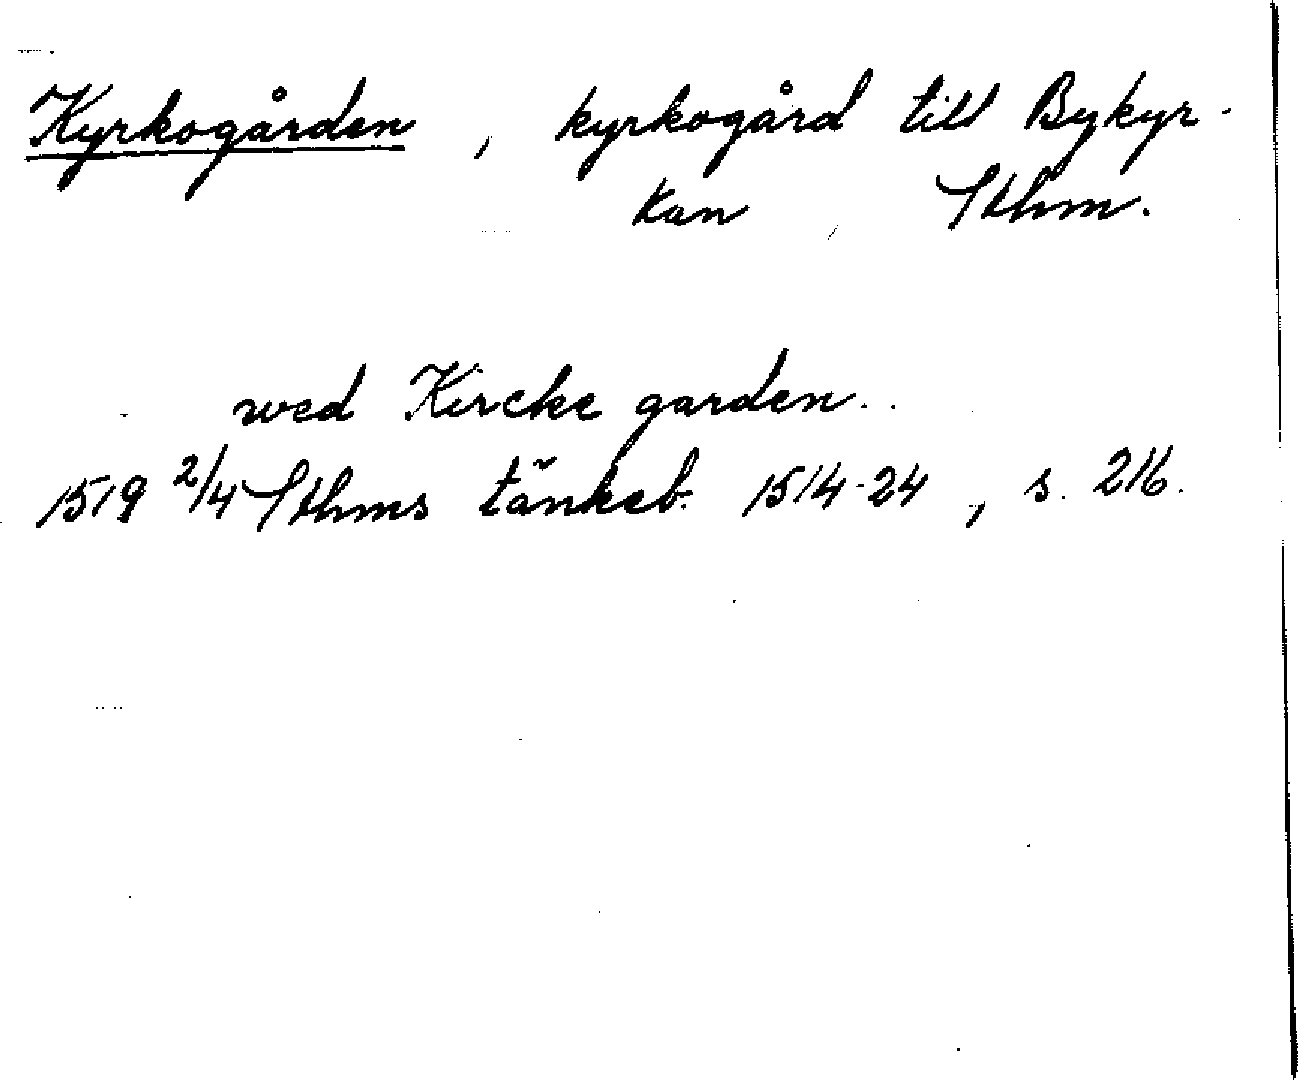 Kyrkogården, kyrkogård till Bykyr-
kan, Sthm.
wed Kircke garden.
1519 2/4 Sthms tänkeb. 1514-24, s. 216.